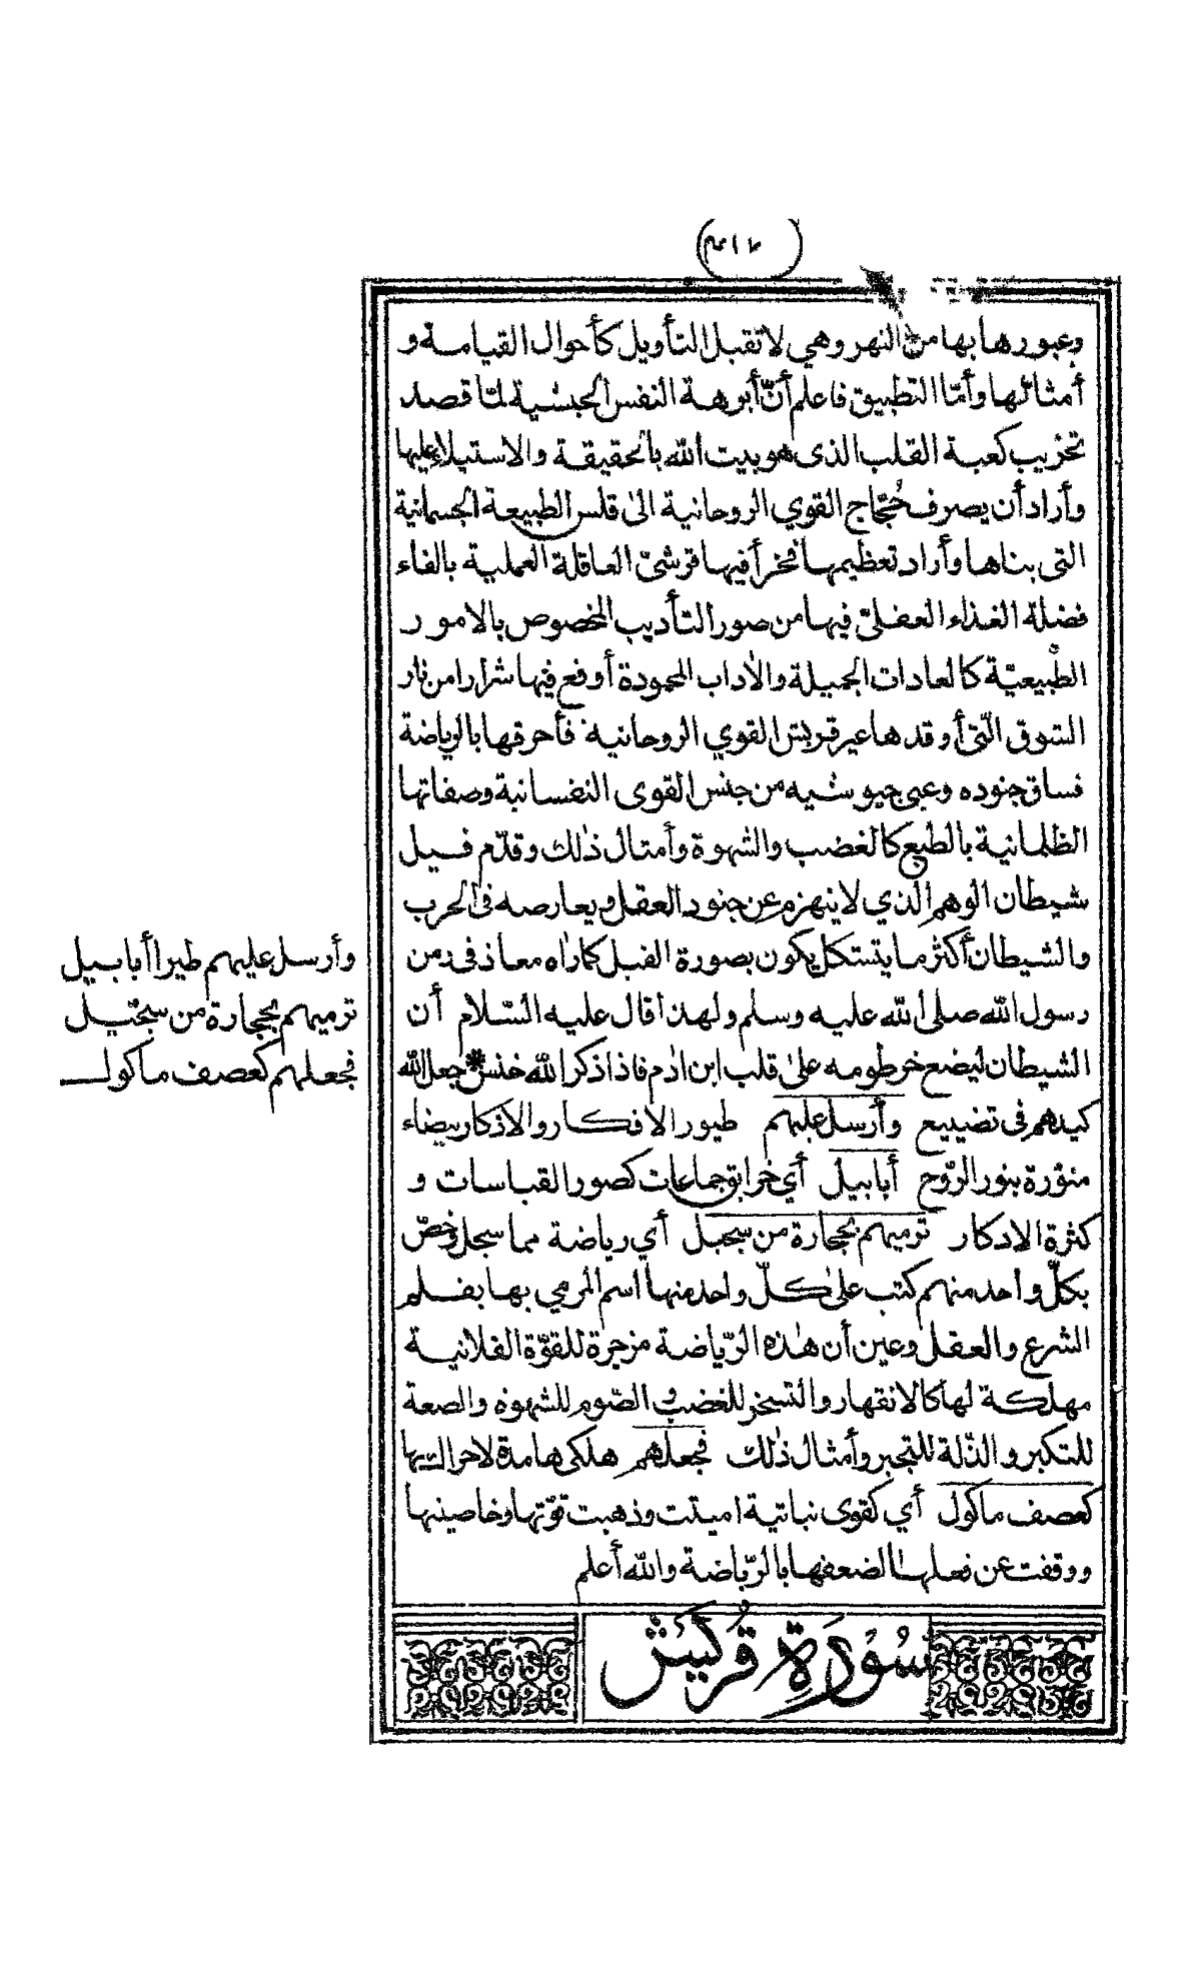 وعبورها بها من النهر وهي لا تقبل التأويل كأحوال القيامة و
أمثالها وأمّا التطبيق فاعلم أنّ أبرهة النفس الحبشية لمّا قصد
تخريب كعبة القلب الذى هو بيت الله بالحقيقة والاستيلاء عليها
وأراد أن يصرف حُجّاج القوي الروحانية الىٰ قلس الطبيعة الجسمانية
التى بناها وأراد تعظيمها فخرأ فيها قرشىّ العاقلة العملية بالقاء
فضلة الغذاء العقلىّ فيها من صور التأديب المخصوص بالامور
الطّبيعيّة كالعادات الجميلة والاٰداب المحمودة أو وقع فيها شرارا من نار
الشوق الّتى أوقدها عير قريش القوي الروحانية فأحرقها بالرياضة
فساق جنوده وعبى جيوشه من جنس القوى النفسانية وصفاتها
الظلمانية بالطبع كالغضب والشهوة وأمثال ذٰلك وقدّم فيل
شيطان الوهم الذي لا ينهزم عن جنود العقل ويعارضه فى الحرب
والشيطان أكثر ما يتشكل يكون بصورة الفيل كما رٰاه معاذ فى زمن
رسول الله صلى الله عليه وسلم ولهذا قال عليه السّلام أن
الشيطان ليضع خرطومه علىٰ قلب ابن اٰدم فاذا ذكر الله خنس * جعل الله
كيدهم فى تضييع وأرسل عليهم طيور الافكار والاذكار بيضاء
منوّرة بنور الرّوح أبابيل أي خرابق جماعات كصور القياسات و
كثرة الاذكار ترميهم بحجارة من سجيل أي رياضة مما سجل وخصّ
بكلّ واحد منهم كتب علىٰ كلّ واحد منها اسم المرمي بها بقلم
الشرع والعقل وعين أن هٰذه الرّياضة مزجرة للقوّة الفلانية
مهلكة لها كالانقهار والتسخر للغضب و الصّوم للشهوة والضعة
للتكبر والذّلة للتجبر وأمثال ذٰلك فجعلهم هلكى هامدة لا حراك بها
كعصف مأكول أي كقوى نباتية اميتت وذهبت قوّتها وخاصيتها
ووقفت عن فعلها لضعفها بالرّياضة والله أعلم
وأرسل عليهم طيرا أبابيل
ترميهم بحجارة من سجّيل
فجعلهم كعصف مأكول
سُورَةِ قُرَيش